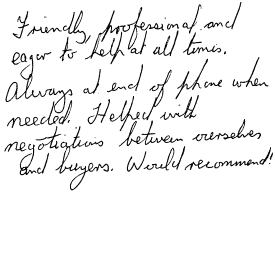 Friendly, professional and
eager to help at all times.
Always at end of phone when
needed. Helped with
negotiations between ourselves
and buyers. Would recommend!